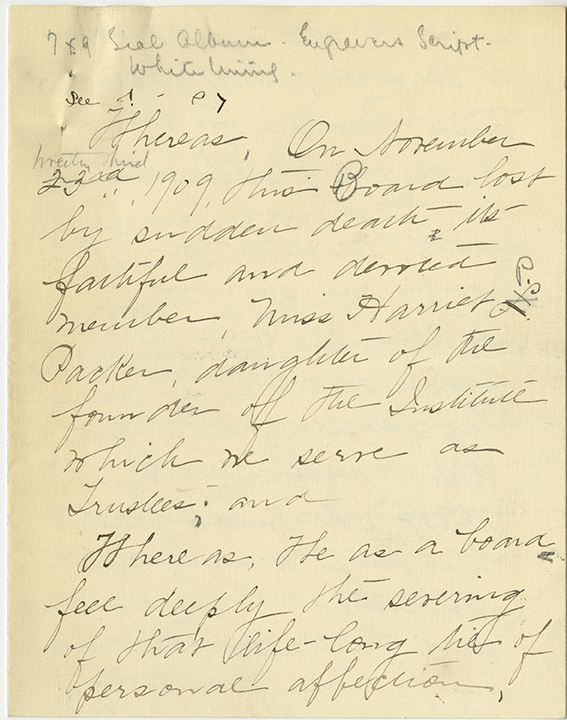 7x9 Seal Album. Engravers Script.
White lining.
Dec
Whereas, On November
twenty third
23rd, 1909, this Board lost
by sudden death its
faithful and devoted
member, Miss Harriet
Packer, daughter of the
founder of the Institute
which we serve as
Trustees; and
Whereas, We as a board,
feel deeply the severing
of that life-long tie of
personal affection,